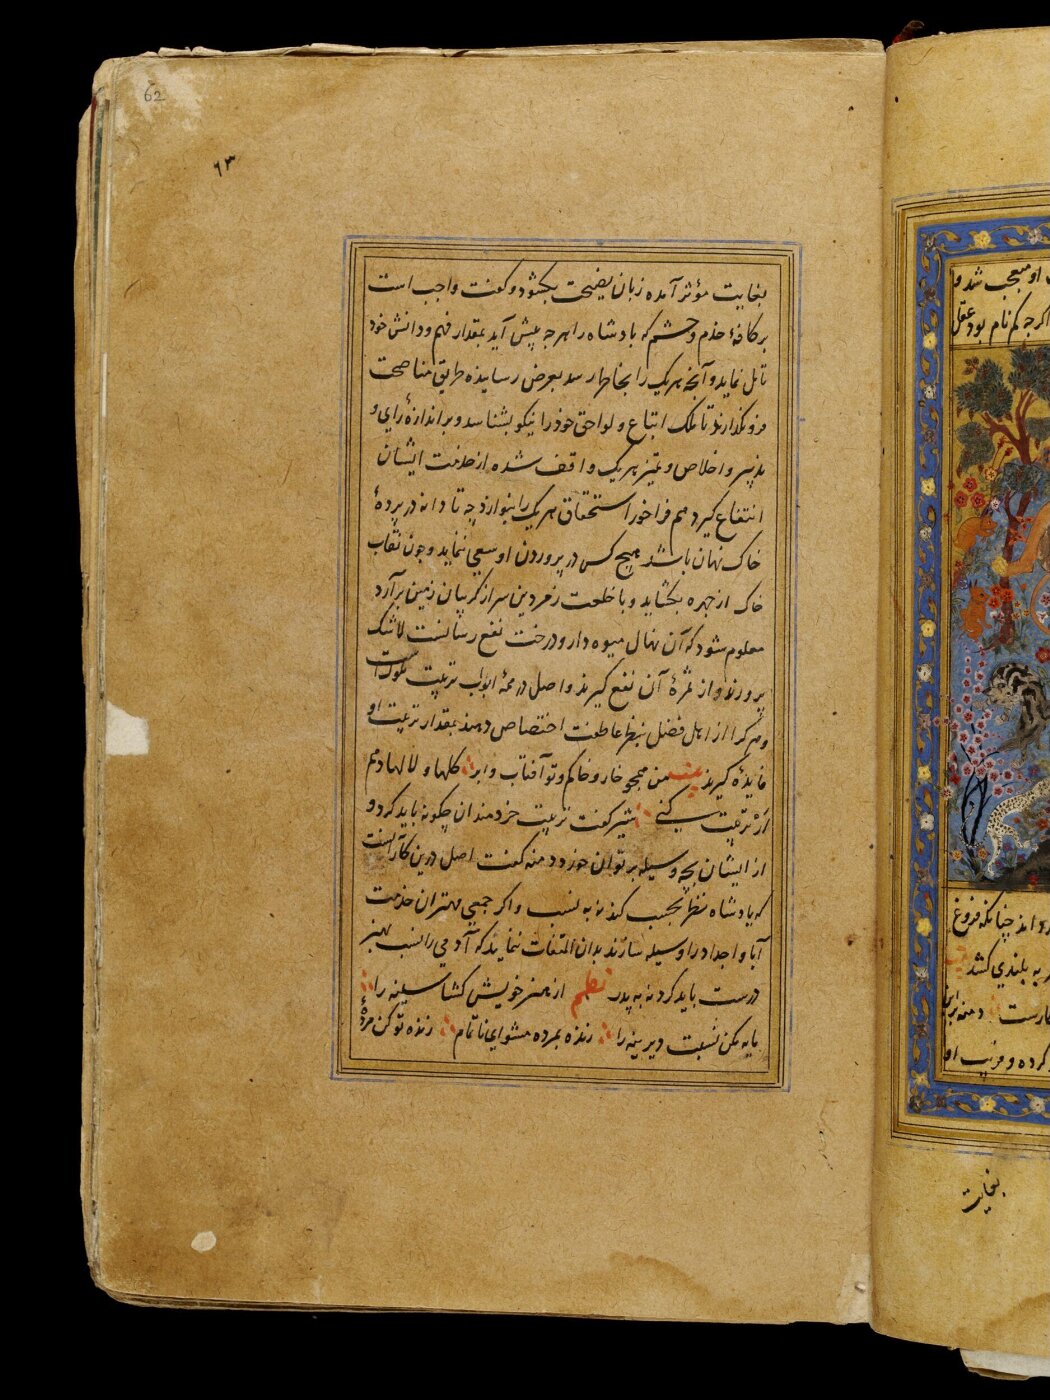 62
٦٣
بغایت مؤثر آمده زبان نصیحت بکشود و کفت واجب است
بر کافهٔ خدم و حشم که بادشاه را هرچه پیش آید بمقدار فهم و دانش خود
تامل نماید و آنچه هریک را بخاطر رسد بعرض رسانیده طریق مناصحت
فرونکذارند تا ملک اتباع و لواحق خود را نیکو بشناسد و بر اندازهٔ رای و
تدبیر و اخلاص و تمیز هریک واقف شده از خدمت ایشان
انتفاع کیرد هم فراخور استحقاق هریک را بنوازد چه تا دانه در پردهٔ
خاک نهان باشد هیچ کس در پروردن او سعی ننماید و چون نقاب
خاک از چهره بکشاید و با خلعت زمردین سر از کریبان زمین برآرد
معلوم شود که آن نهال میوه دار و درخت نفع رسانست لاشک
پرورند و از ثمرهٔ آن نفع کیرند و اصل در همهٔ ابواب تربیت ملوکست
و هرکرا از اهل فضل بنظر عاطفت اختصاص دهند بمقدار تربیت او
فایده کیرند من همچو خار و خاکم و تو آفتاب و ابر کلها و لالها دهم
ار تربیت کنی شیر کفت تربیت خردمندان چکونه باید کرد و
از ایشان بچه وسیله بر توان خورد دمنه کفت اصل درین کار آنست
که پادشاه نظر بحسب کند نه به نسب و اکر جمعی مهتران خدمت
آبا و اجداد را وسیله سازند بدان التفات ننماید که آدمی را نسب بهنر
درست باید کرد نه به پدر نظم از هنر خویش کشا سینه را
مایه مکن نسبت دیرینه را زنده بمرده مشو ای ناتمام زنده تو کن مردهٔ
او معجب شد و
اکرچه کم نام بود عقل
اند چنانکه فروغ
به بلندی کشد
دمنه این
کرده و فریب او
بغایت